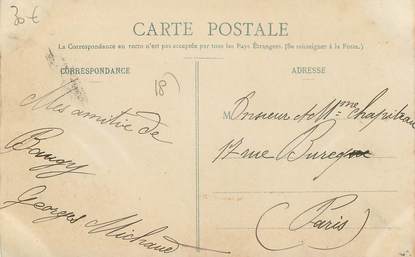 30 €
CARTE POSTALE
La Correspondance au recto n'est pas acceptée par tous les Pays Étrangers. (Se renseigner à la Poste.)
CORRESPONDANCE
18
Mes amitié de
Baugy
Georges Michaud
ADRESSE
Monsieur et Mme Chapiteau
17 rue
(Paris)